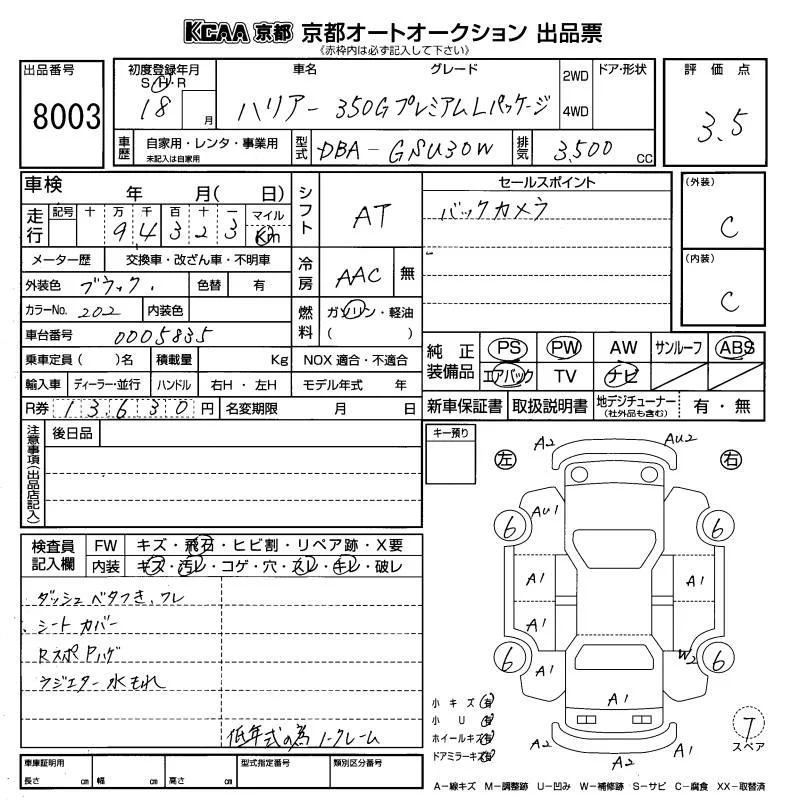 KCAA 京都 京都オートオークション 出品票
《赤枠内は必ず記入して下さい》
出品番号
8003
初度登録年月
S・H・R
18 月
車名 グレード
ハリアー 350GプレミアムLパッケージ
2WD
4WD
ドア・形状
評価点
3.5
車歴
自家用・レンタ・事業用
未記入は自家用
型式
DBA-GSU30W
排気
3,500 CC
車検 年 月( 日)
走行
記号 十 万 千 百 十 一 マイル
9 4 3 2 3 Km
メーター歴 交換車・改ざん車・不明車
外装色 ブラック. 色替 有
カラーNo. 202 内装色
車台番号 0005835
乗車定員( )名 積載量 Kg NOX 適合・不適合
輸入車 ディーラー・並行 ハンドル 右H・左H モデル年式 年
R券 13,630円 名変期限 月 日
シフト
AT
冷房
AAC 無
燃料
ガソリン・軽油
( )
セールスポイント
バックカメラ
(外装)
C
(内装)
C
純正装備品
PS PW AW サンルーフ ABS
エアバック TV ナビ
新車保証書 取扱説明書 地デジチューナー
(社外品も含む)
有・無
注意事項(出品店記入)
後日品
キー預り
検査員記入欄
FW キズ・飛石・ヒビ割・リペア跡・X要
内装 キズ・汚レ・コゲ・穴・スレ・キレ・破レ
ダッシュ ベタつき、ワレ
シート カバー
Rスポ Pハゲ
ラジエター 水もれ
低年式の為 ノークレーム
車庫証明用 型式指定番号 類別区分番号
長さ cm 幅 cm 高さ cm
左 右
A2 AU2
AU1
6 6
A1 A1
A1
6 6
A1 W2
A1
A2 A2
小キズ(有)
小U(有)
ホイールキズ(有)
ドアミラーキズ(有)
7
スペア
A-線キズ M-調整跡 U-凹み W-補修跡 S-サビ C-腐食 XX-取替済